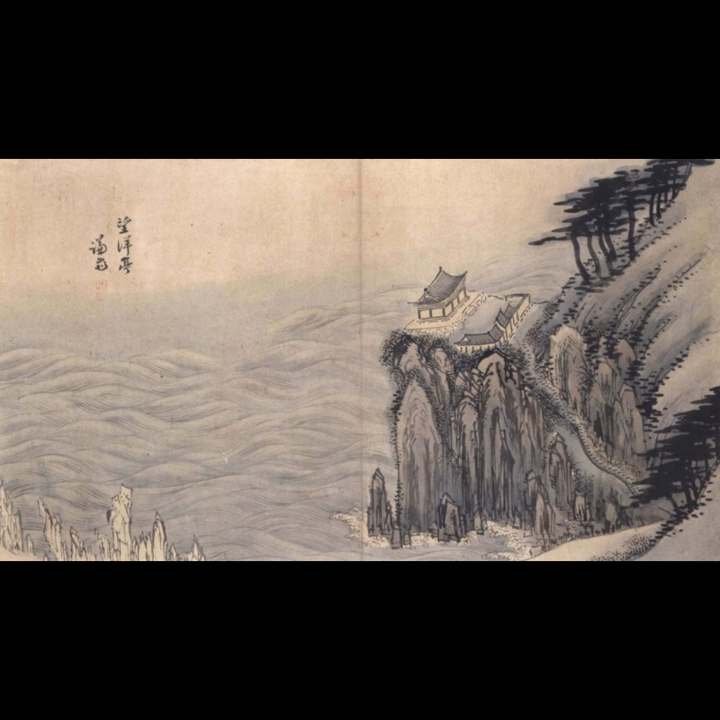 望洋亭
謙齋